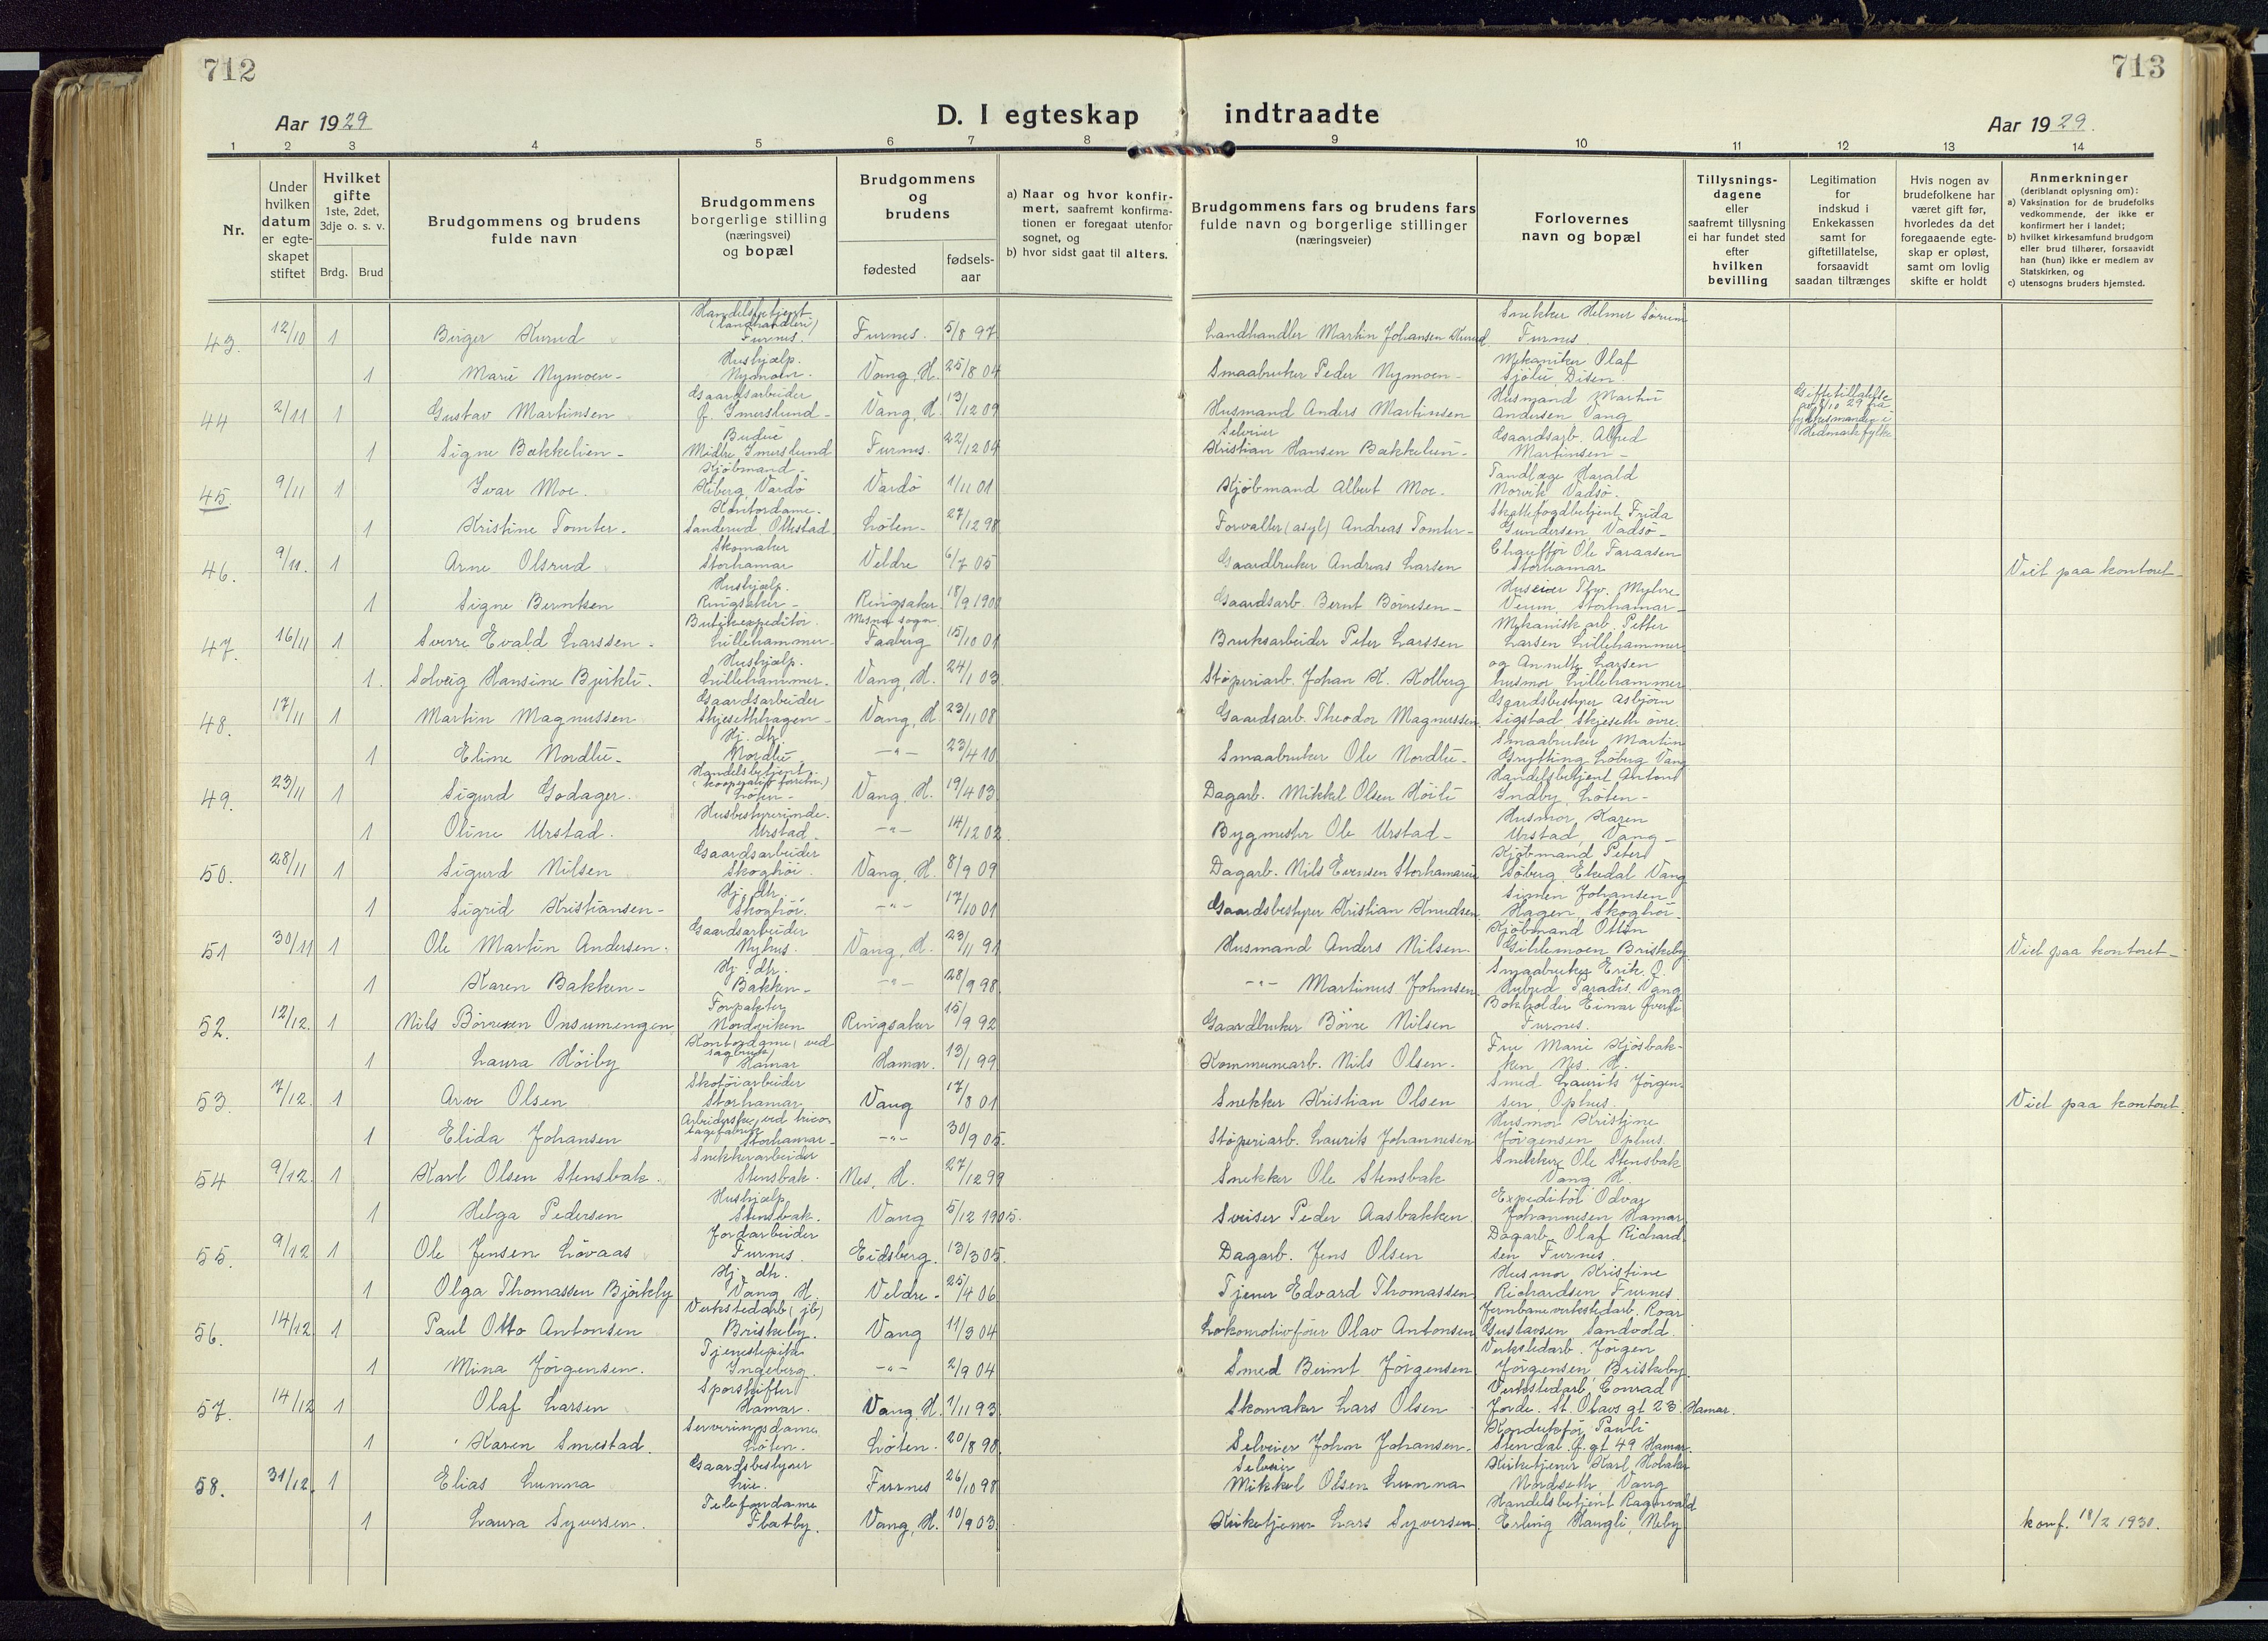 712
713
D. I egteskap indtraadte
Aar 1929
Aar 1929.
1 2 3 4 5 6 7 8 9 10 11 12 13 14
Nr.
Under hvilken datum er egte- skapet stiftet
Hvilket gifte 1ste, 2det, 3dje o. s. v.
Brdg. Brud
Brudgommens og brudens fulde navn
Brudgommens borgerlige stilling (næringsvei) og bopæl
Brudgommens og brudens
fødested
fødsels- aar
a) Naar og hvor konfir- mert, saafremt konfirma- tionen er foregaat utenfor sognet, og
b) hvor sidst gaat til alters.
Brudgommens fars og brudens fars fulde navn og borgerlige stillinger (næringsveier)
Forlovernes navn og bopæl
Tillysnings- dagene eller saafremt tillysning ei har fundet sted efter hvilken bevilling
Legitimation for indskud i Enkekassen samt for giftetillatelse, forsaavidt saadan tiltrænges
Hvis nogen av brudefolkene har været gift før, hvorledes da det foregaaende egte- skap er opløst, samt om lovlig skifte er holdt
Anmerkninger (deriblandt oplysning om):
a) Vaksination for de brudefolks vedkommende, der ikke er konfirmert her i landet;
b) hvilket kirkesamfund brudgom eller brud tilhører, forsaavidt han (hun) ikke er medlem av Statskirken, og
c) utensogns bruders hjemsted.
43. 12/10 1 Birger Kurud Handelsbetjent (landhandleri) Furnes. Furnes. 5/8 97 Landhandler Martin Johansen Kurud Snekker Helmer Sörum Furnes.
1 Marie Nymoen - Hushjælp. Nymoen. Vang, H. 25/8 04 Smaabruker Peder Nymoen - Mekaniker Olaf
44 2/11 1 Gustav Martinsen Gaardsarbeider Vang, H. 13/12 09 Husmand Anders Martinsen Husmand Martin Andersen Vang Giftetillatelse
1 Signe Bækkelien - Budeie Furnes. 22/12 04 Selveier Kristian Hansen Bækkelien - Gaardsarb. Alfred Martinsen -
45. 9/11 1 Ivar Moe. Kjöbmand - Kiberg, Vardö Vardö 1/11 01 Kjöbmand Albert Moe. Tandlæge Harald Norvik Vadsö.
1 Kristine Tomter. Kontordame. Sanderud Ottestad Löten - 27/12 98 Forvalter (asyl) Andreas Tomter - Skattefogdbetjent Frida Gundersen Vadsö -
46. 9/11. 1 Arne Olsrud Skomaker Storhamar Veldre 6/7 05 Gaardbruker Andreas Larsen Chauffør Ole Faraasen Storhamar Viet paa kontoret -
1 Signe Berntsen Hushjælp. Ringsaker - Ringsaker Mesna sogn 18/9 1900 Gaardsarb. Bernt Börresen - Huseier Thv. Myhre Storhamar -
47. 16/11 1 Sverre Evald Larssen - Butikexpeditör. Lillehammer - Faaberg 15/10 01 Bruksarbeider Peter Larssen Mekanisk arb. Petter Larsen Lillehammer
1. Solveig Hansine Bjerkli. Hushjælp. Lillehammer. Vang, H. 24/1 03 Stöperiarb. Johan K. Kolberg og Annette Larsen husmor Lillehammer
48. 17/11 1 Martin Magnussen Gaardsarbeider Skjesethhagen - Vang, H 23/11 08 Gaardsarb. Theodor Magnussen. Gaardsbestyrer Asbjörn Sigstad, Skjeseth övre.
1 Eline Nordlie - Hj. dtr. Nordlie -"- 23/4 10 Smaabruker Ole Nordlie - Smaabruker Martin Grytting Löberg Vang
49. 23/11 1 Sigurd Godager. Handelsbetjent (kooperativ forretn.) Löten - Vang, H. 19/4 03 Dagarb. Mikkel Olsen Höili Handelsbetjent Anton Indby, Löten -
1 Oline Urstad. Husbestyrerinde. Urstad -"- 14/12 02. Bygmester Ole Urstad - Husmor Karen Urstad, Vang -
50. 28/11 1 Sigurd Nilsen Gaardsarbeider Skoghöi. Vang, H. 8/9 09 Dagarb. Nils Evensen Storhamarlie Kjöbmand Peter Söberg, Ekedal Vang
1 Sigrid Kristiansen - Hj. dtr. Skoghöi. -"- 17/10 01 Gaardsbestyrer Kristian Knudsen. Simen Johansen Hagen, Skoghöi -
51 30/11 1 Ole Martin Andersen. Gaardsarbeider Nyhus. Vang, H. 23/11 91 Husmand Anders Nilsen. Kjöbmand Otton Gihlemoen, Briskeby Viet paa kontoret -
1 Karen Bakken - Hj. dtr. Bakken - -"- 28/9 98 -"- Martinus Johnsen Smaabruker Erik O. Paradis Vang
52. 12/12. 1 Nils Börresen Onsumengen Forpakter Nordviken Ringsaker 15/9 92 Gaardbruker Börre Nilsen Bokholder Einar Överli Furnes.
1 Laura Höiby Kontordame (ved sagbruk) Hamar Hamar. 13/1 99 Kommunearb. Nils Olsen. Fru Marie Kjösbak- ken Nes. H.
53. 7/12. 1 Arve Olsen Skotöiarbeider Storhamar Vang 17/8 01 Snekker Kristian Olsen Smed Laurits Jörgen- sen, Ophus. Viet paa kontoret.
1 Elida Johansen Arbeiderske, ved trico- tagefabrik Storhamar - -"- 30/9 05. Stöperiarb. Laurits Johannesen Husmor Kristine Jörgensen Ophus.
54 9/12. 1 Karl Olsen Stensbak. Snekkerarbeider Stensbak. Nes, H. 27/12 99 Snekker Ole Stensbak Snekker Ole Stensbak Vang H.
1 Helga Pedersen Hushjælp Stensbak. Vang 5/12 1905. Sveiser Peder Aasbakken Expeditör Odvar Johannesen Hamar
55. 9/12 1 Ole Jensen Lövaas Jordarbeider Furnes. Eidsberg. 13/3 05. Dagarb. Jens Olsen Dagarb. Olaf Richard- sen Furnes.
1 Olga Thomassen Björkby Hj. dtr. Vang H. Veldre - 25/4 06 Tjener Edvard Thomassen Husmor Kristine Richardsen Furnes.
56. 14/12 1 Paul Otto Antonsen Verkstedarb (jb) Briskeby. Vang 11/3 04 Lokomotivförer Olav Antonsen Jernbaneverkstedarb. Roar Gustavsen Sandvold.
1 Mina Jörgensen. Tjenestepike Ingeberg. -"- 2/9 04 Smed Bernt Jörgensen Verkstedarb. Jörgen Jörgensen, Briskeby.
57. 14/12 1 Olaf Larsen Sporskifter Hamar. Vang, H. 1/11 93 Skomaker Lars Olsen Verkstedarb. Conrad Jorde. St. Olavs gt 23. Hamar.
1 Karen Smestad. Serveringsdame Löten. Löten. 20/8 98 Selveier Johan Johansen. Konduktör Pauli Stendal. gt 49 Hamar.
58. 31/12. 1 Elias Lunna Gaardsbestyrer Lie. Furnes 26/10 98 Selveier Mikkel Olsen Lunna Kirketjener Karl Hobæk Nordseth, Vang
1 Laura Syversen. Telefondame Flatby. Vang, H. 10/9 03 Kirketjener Lars Syversen Handelsbetjent Ragnvald Erling Haugli, Neby konf. 18/2 1930.